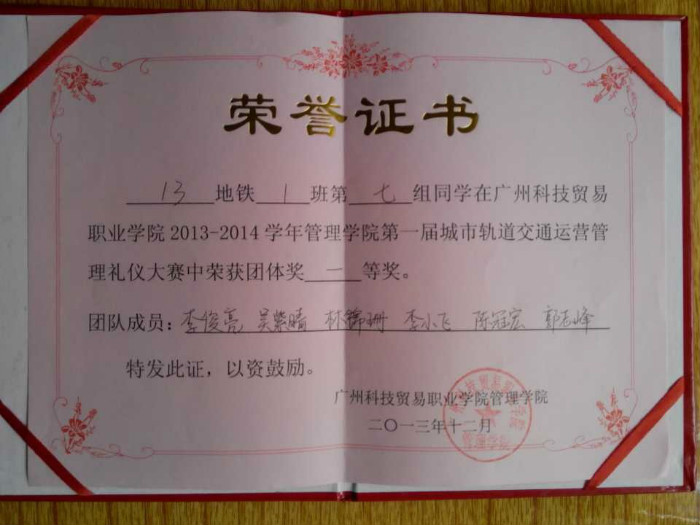 荣誉证书
13 地铁 1 班第 七 组同学在广州科技贸易
职业学院2013-2014学年管理学院第一届城市轨道交通运营管
理礼仪大赛中荣获团体奖 一 等奖。
团队成员：李俊亮 吴紫晴 林锦珊 李小飞 陈冠宏 郭志峰
特发此证，以资鼓励。
广州科技贸易职业学院管理学院
二〇一三年十二月